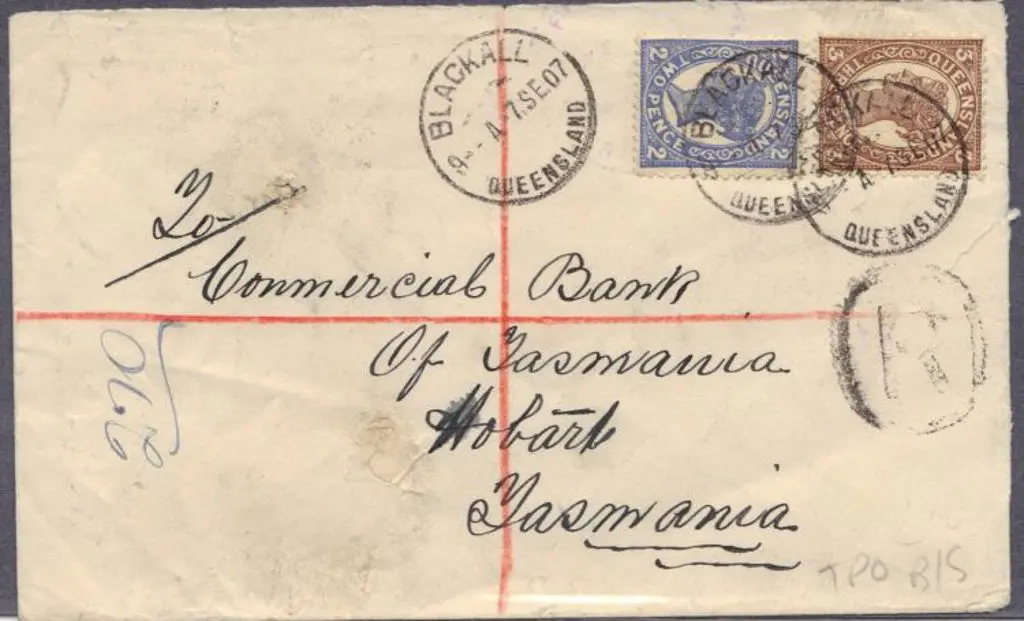 BLACKALL
A
7.SE.07
QUEENSLAND
QUEENSLAND
TWO PENCE
2
2
2
BLACKALL
QUEENSLAND
QUEENSLAND
3
3
A
7.SE.07
QUEENSLAND
To
Commercial Bank
Of Tasmania
Hobart
Tasmania
R
TPO B/S